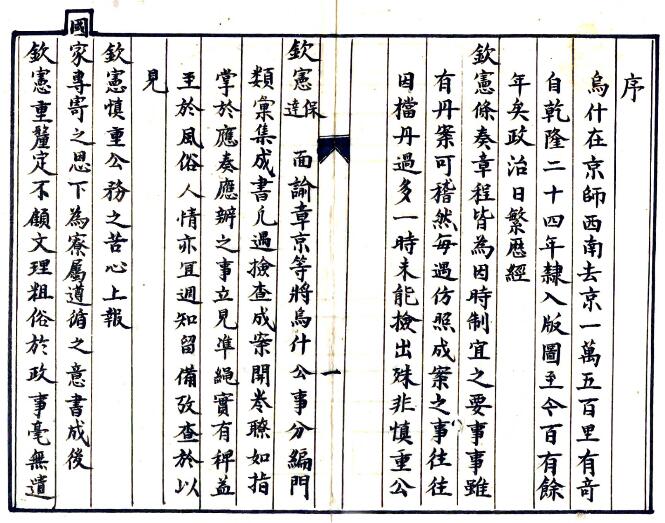 序
烏什在京師西南去京一萬五百里有奇
自乾隆二十四年隸入版圖至今百有餘
年矣政治日繁歷經
欽憲條奏章程皆為因時制宜之要事事雖
有丹案可稽然每遇仿照成案之事往往
因檔丹過多一時未能撿出殊非慎重公
一
欽憲保達面諭章京等將烏什公事分編門
類彙集成書凡遇撿查成案開卷瞭如指
掌於應奏應辦之事立見準繩實有裨益
至於風俗人情亦宜週知留備攷查於以
見
欽憲慎重公務之苦心上報
國家專寄之恩下為寮屬遵循之意書成後
欽憲重釐定不顧文理粗俗於政事毫無遺